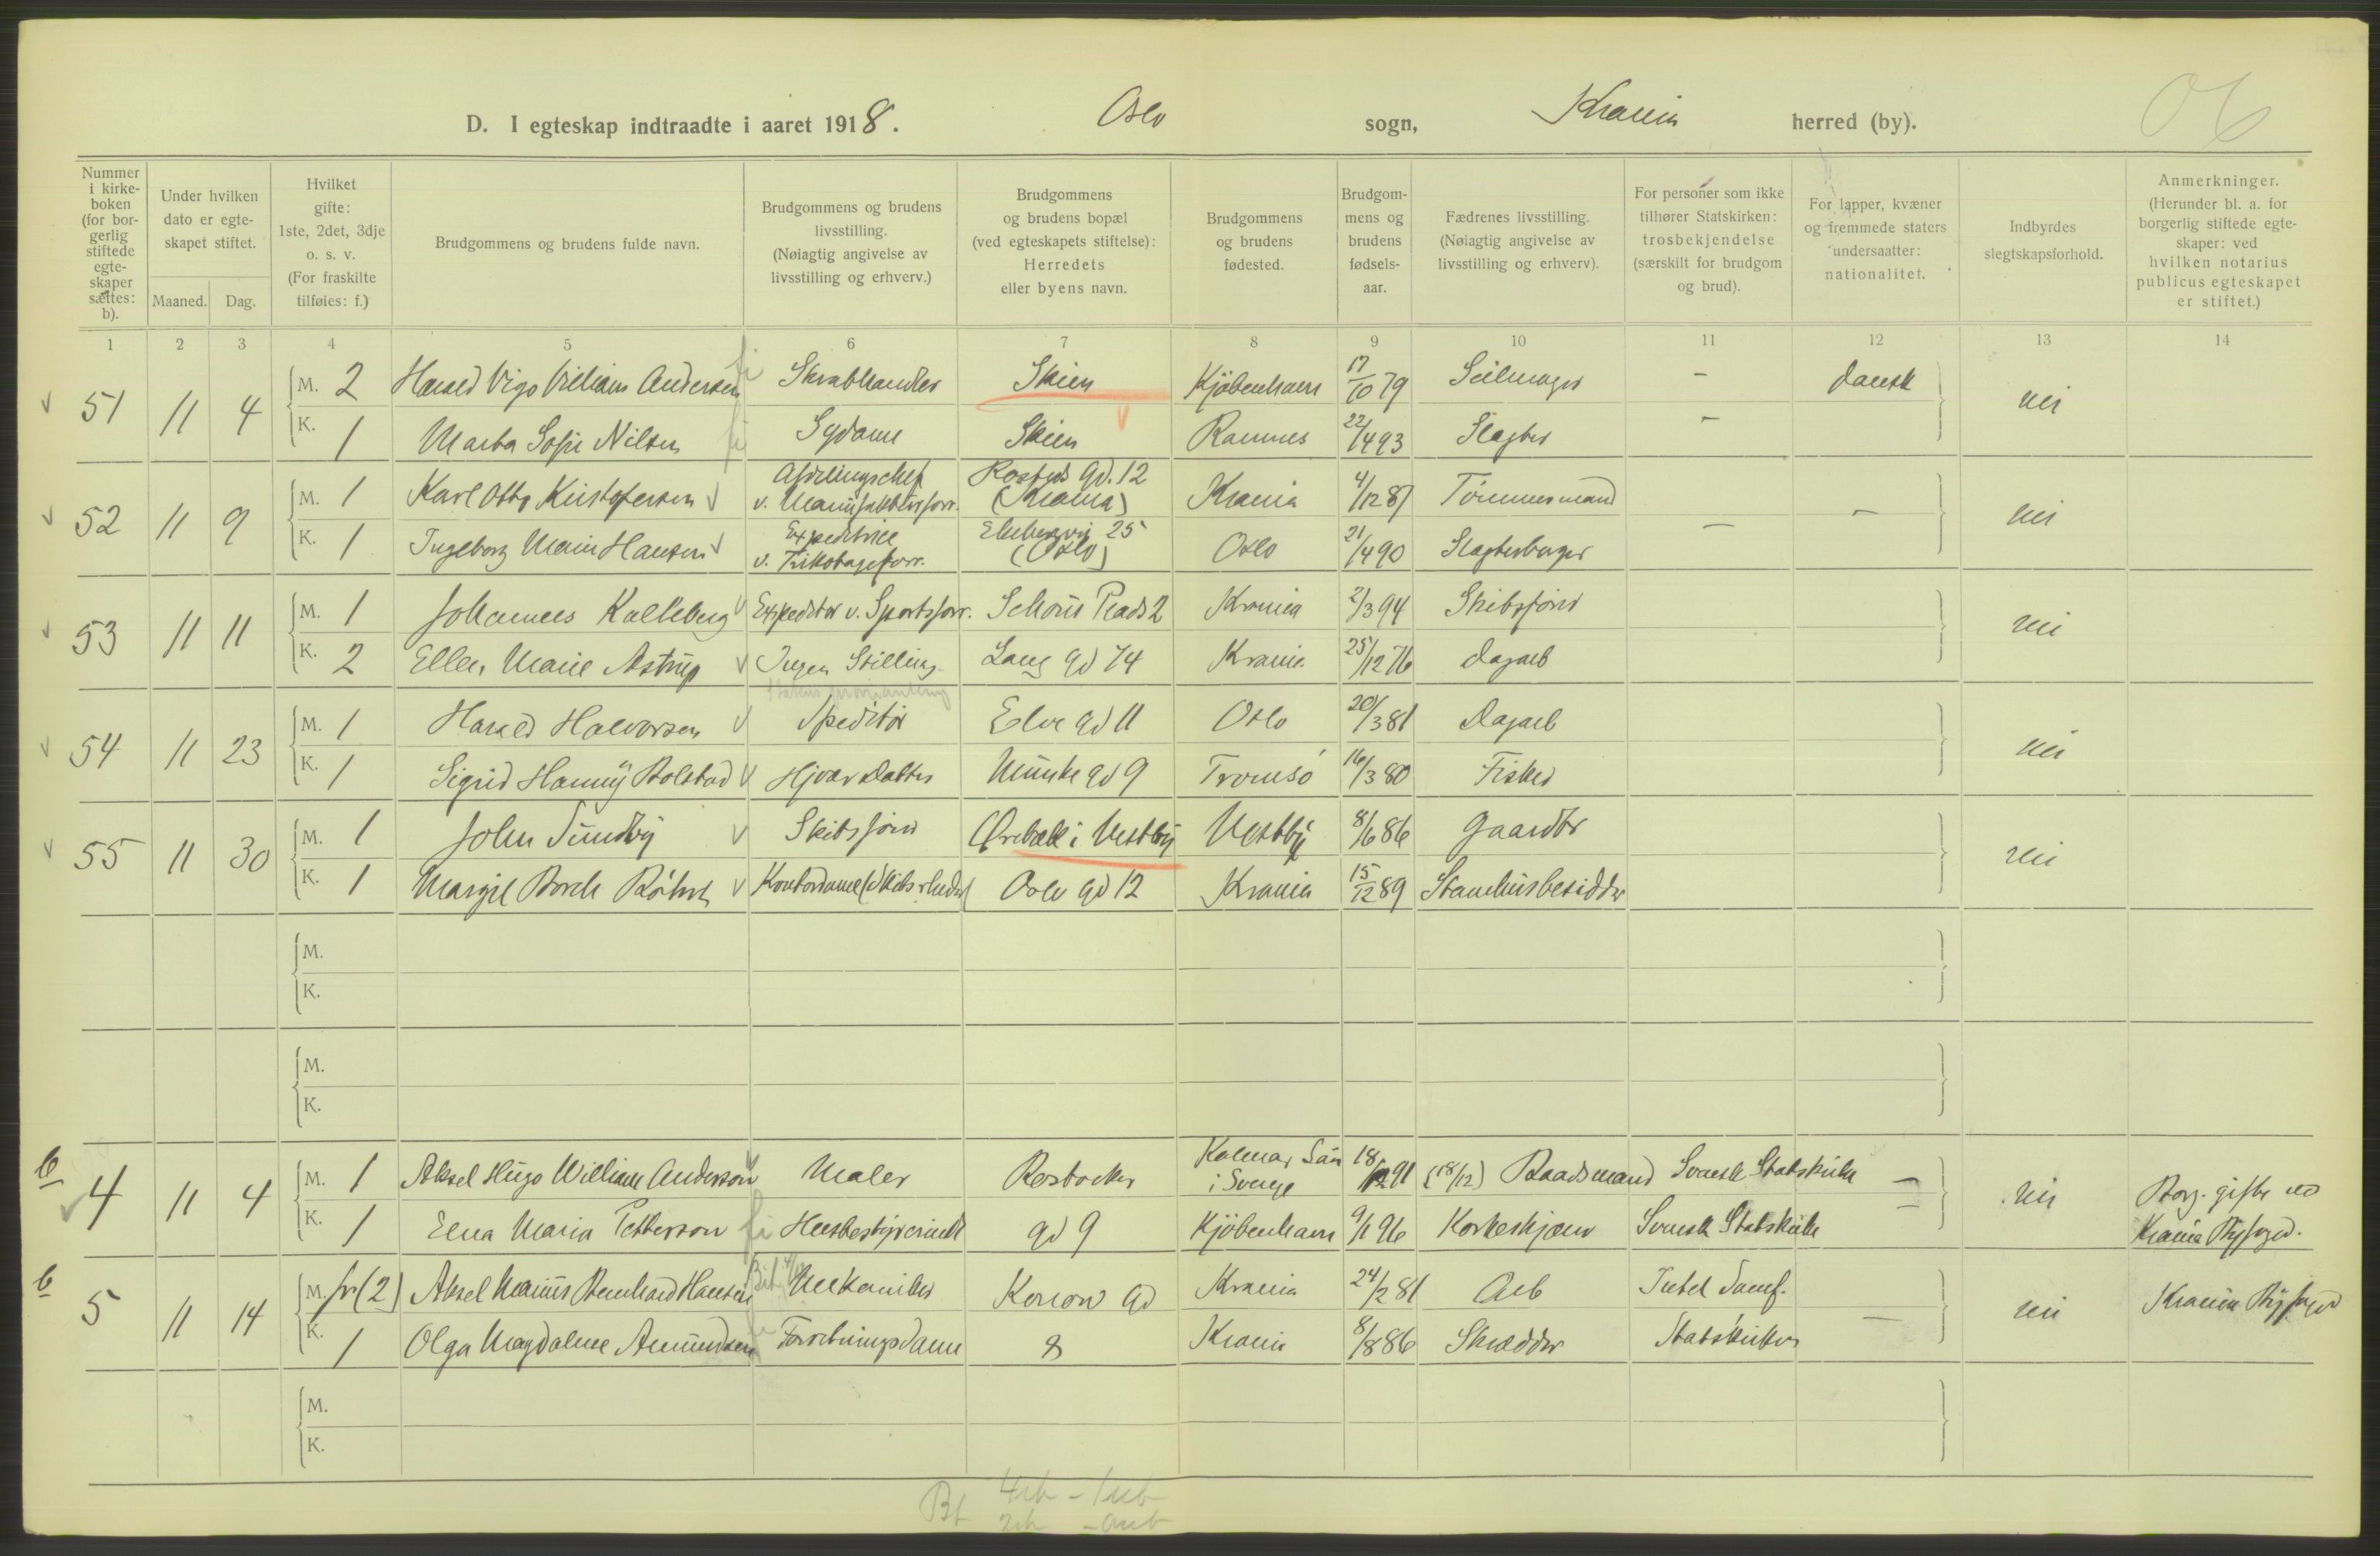 D. I egteskap indtraadte i aaret 1918. Oslo sogn, Krania herred (by).
Nummer i kirkeboken (for borgerlig stiftede egteskaper sættes: b).
Under hvilken dato er egteskapet stiftet.
Maaned. Dag.
Hvilket gifte: 1ste, 2det, 3dje o. s. v. (For fraskilte tilføies: f.)
Brudgommens og brudens fulde navn.
Brudgommens og brudens livsstilling. (Nøiagtig angivelse av livsstilling og erhverv.)
Brudgommens og brudens bopæl (ved egteskapets stiftelse): Herredets eller byens navn.
Brudgommens og brudens fødested.
Brudgommens og brudens fødselsaar.
Fædrenes livsstilling. (Nøiagtig angivelse av livsstilling og erhverv).
For personer som ikke tilhører Statskirken: trosbekjendelse (særskilt for brudgom og brud).
For lapper, kvæner og fremmede staters undersaatter: nationalitet.
Indbyrdes slegtskapsforhold.
Anmerkninger. (Herunder bl. a. for borgerlig stiftede egteskaper: ved hvilken notarius publicus egteskapet er stiftet.)
1 2 3 4 5 6 7 8 9 10 11 12 13 14
51 11 4 M. 2 Harald Vigo Villiam Andersen Skrabhandler Skien Kjöbenhavn 17/10 79 Seilmager - dansk nei
K. 1 Marta Sofie Nilsen Sydame Skien Ramnes 22/4 93 Slagter -
52 11 9 M. 1 Karl Otto Kristofersen Afdelingschef v. Manufakturforr. Rosteds gd. 12 (Krania) Krania 4/12 87 Tömmermand - nei
K. 1 Ingeborg Marie Hansen Expeditrice v. Trikotageforr. Ekebergvn 25 (Oslo) Oslo 21/4 90 Slagterborger -
53 11 11 M. 1 Johannes Kalleberg Expeditör v. Sportsforr. Schous Plads 2 Krania 2/3 94 Skibsförer nei
K. 2 Ellen Marie Astrup Ingen Stilling Lang gd 74 Krania 25/12 76 dagarb
54 11 23 M. 1 Harald Halvorsen Speditör Elve gd 11 Oslo 20/3 81 Dagarb nei
K. 1 Sigrid Hanny Bolstad Hjvær. Datter Munke gd 9 Tromsö 16/3 80 Fisker
55 11 30 M. 1 John Sundby Skibsförer Vestby Vestby 8/6 86 gaardbr nei
K. 1 Margit Borch Kontordame (Skibsrheder) Oslo gd 12 Krania 15/12 89 Stamhusbesidder
M.
K.
M.
K.
b 4 11 4 M. 1 Aksel Hugo William Anderson Maler Rostocker Kalmar Län i Sverge 18/12 91 (18/12) Raadsmand Svensk Statskirke - nei Borg. gifte ved
K. 1 Elna Maria Petterson Husbestyrerinde gd 9 Kjöbenhavn 9/1 96 Korkeskjærer Svensk Statskirke - Krania Byfoged.
b 5 11 14 M. fr (2) Aksel Marius Bernhard Hansen Mekaniker Konow gd Krania 24/2 81 Arb Intet Samf. - nei Krania Byfoged
K. 1 Olga Magdalene Amundsen Forretningsdame 8 Krania 8/8 86 Skrædder Statskirken
M.
K.